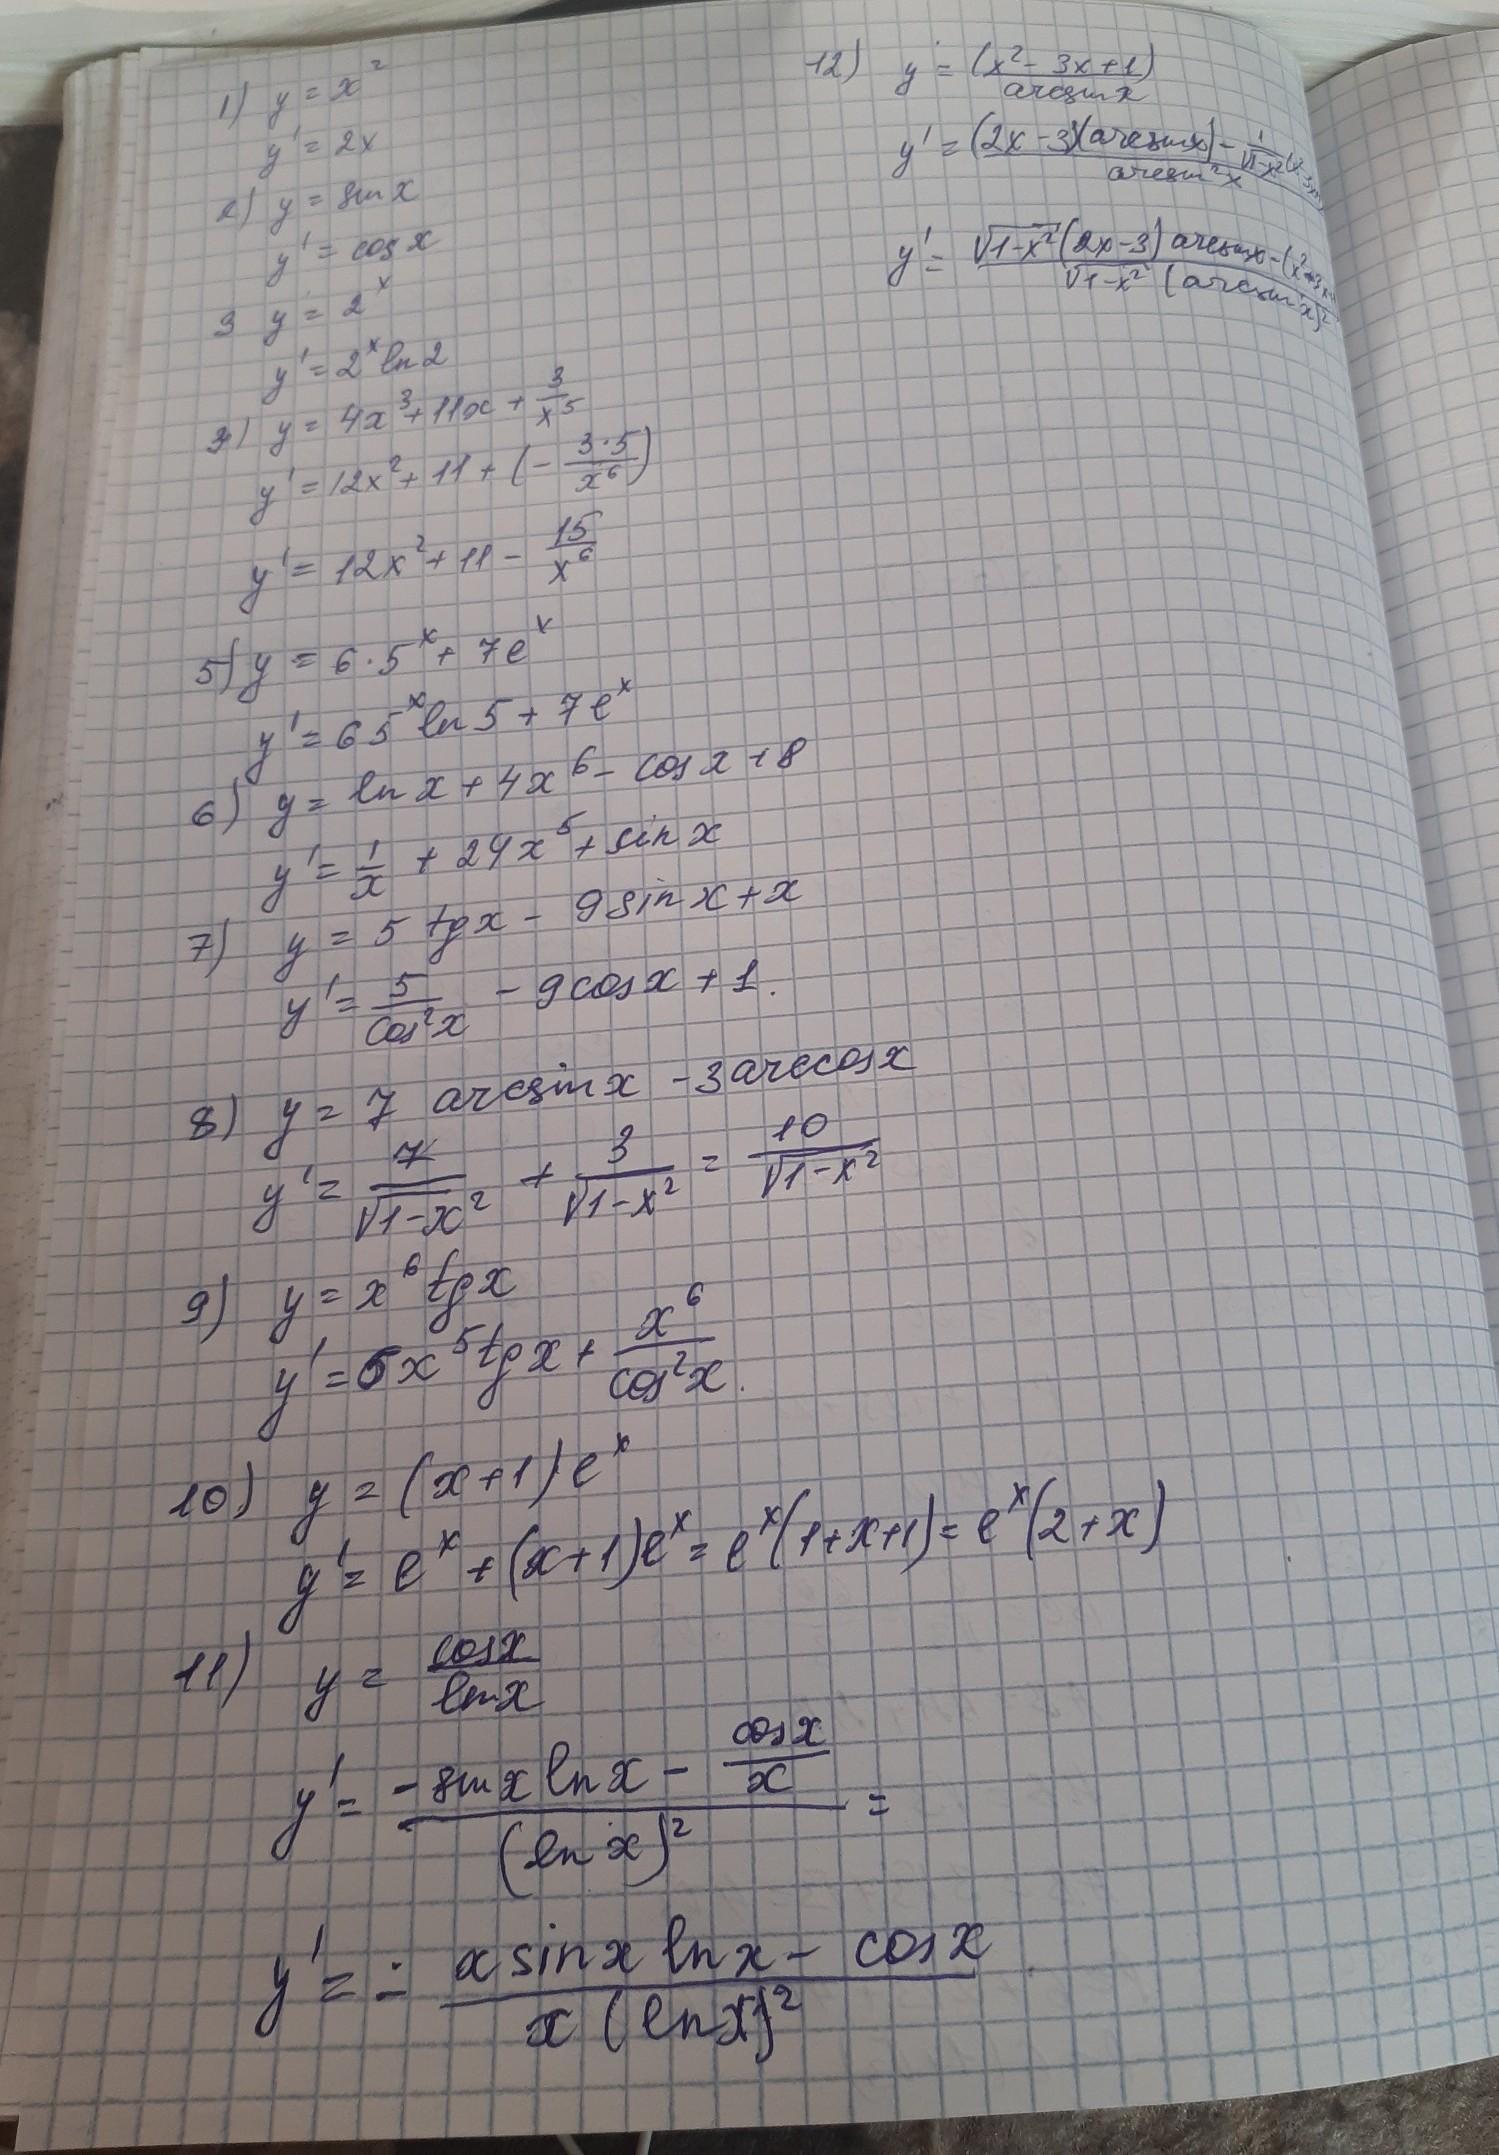 1) y = x²
y' = 2x
2) y = sin x
y' = cos x
3 y = 2ˣ
y' = 2ˣ ln 2
4) y = 4x³ + 11x + 3/x⁵
y' = 12x² + 11 + (- 3·5/x⁶)
y' = 12x² + 11 - 15/x⁶
5) y = 6·5ˣ + 7eˣ
y' = 6 5ˣ ln 5 + 7eˣ
6) y = ln x + 4x⁶ - cos x + 8
y' = 1/x + 24x⁵ + sin x
7) y = 5 tg x - 9 sin x + x
y' = 5/cos²x - 9 cos x + 1.
8) y = 7 arcsin x - 3 arccos x
y' = 7/√1-x² + 3/√1-x² = 10/√1-x²
9) y = x⁶ tg x
y' = 6x⁵ tg x + x⁶/cos²x.
10) y = (x+1) eˣ
y' = eˣ + (x+1)eˣ = eˣ(1+x+1) = eˣ(2+x)
11) y = cos x/ln x
y' = (-sin x ln x - cos x/x)/(ln x)² =
y' = - (x sin x ln x - cos x)/(x (ln x)²)
12) y = (x² - 3x + 1)/arcsin x
y' = ((2x-3)(arcsin x) - 1/√1-x²)/arcsin²x
y' = (√1-x² (2x-3) arcsin x - (x²)/(√1-x² (arcsin x)²)